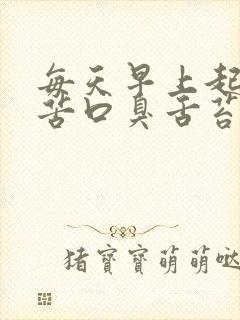 每天早上起
苦口臭舌苔
猪寶寶萌萌哒